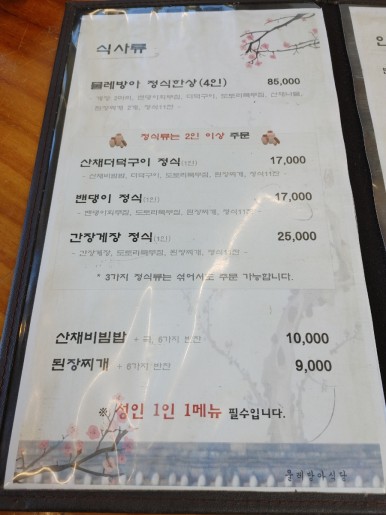 식사류
물레방아 정식한상(4인) 85,000
- 게장 2마리, 밴댕이회무침, 더덕구이, 도토리묵무침, 산채나물,
된장찌개 2개, 정식11찬 -
정식류는 2인 이상 주문
산채더덕구이 정식(1인) 17,000
- 산채비빔밥, 더덕구이, 도토리묵무침, 된장찌개, 정식11찬 -
밴댕이 정식(1인) 17,000
- 밴댕이회무침, 도토리묵무침, 된장찌개, 정식11찬 -
간장게장 정식(1인) 25,000
- 간장게장, 도토리묵무침, 된장찌개, 정식11찬 -
* 3가지 정식류는 섞어서도 주문 가능합니다.
산채비빔밥 + 국, 6가지 반찬 10,000
된장찌개 + 6가지 반찬 9,000
※ 성인 1인 1메뉴 필수입니다.
물레방아식당